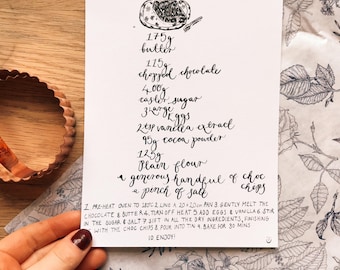 175g
butter
125g
chopped chocolate
400g
caster sugar
3 large
eggs
2 tsp vanilla extract
95g cocoa powder
125g
plain flour
a generous handful of choc
chips
a pinch of salt
1. PRE-HEAT OVEN TO 2. LINE A 20 x 20cm PAN 3 GENTLY MELT THE
CHOCOLATE & BUTTER 4. TURN OFF HEAT 5 ADD EGGS & VANILLA 6. STIR
IN THE SUGAR & SALT 7 SIFT IN ALL THE DRY INGREDIENTS, FINISHING
WITH THE CHOC CHIPS 8 POUR INTO TIN 9. BAKE FOR 30 MINS
10 ENJOY!